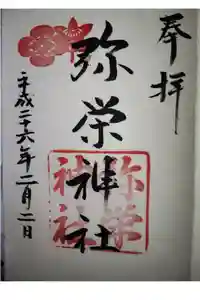 奉拝
弥栄神社
平成二十六年二月二日
弥栄
神社